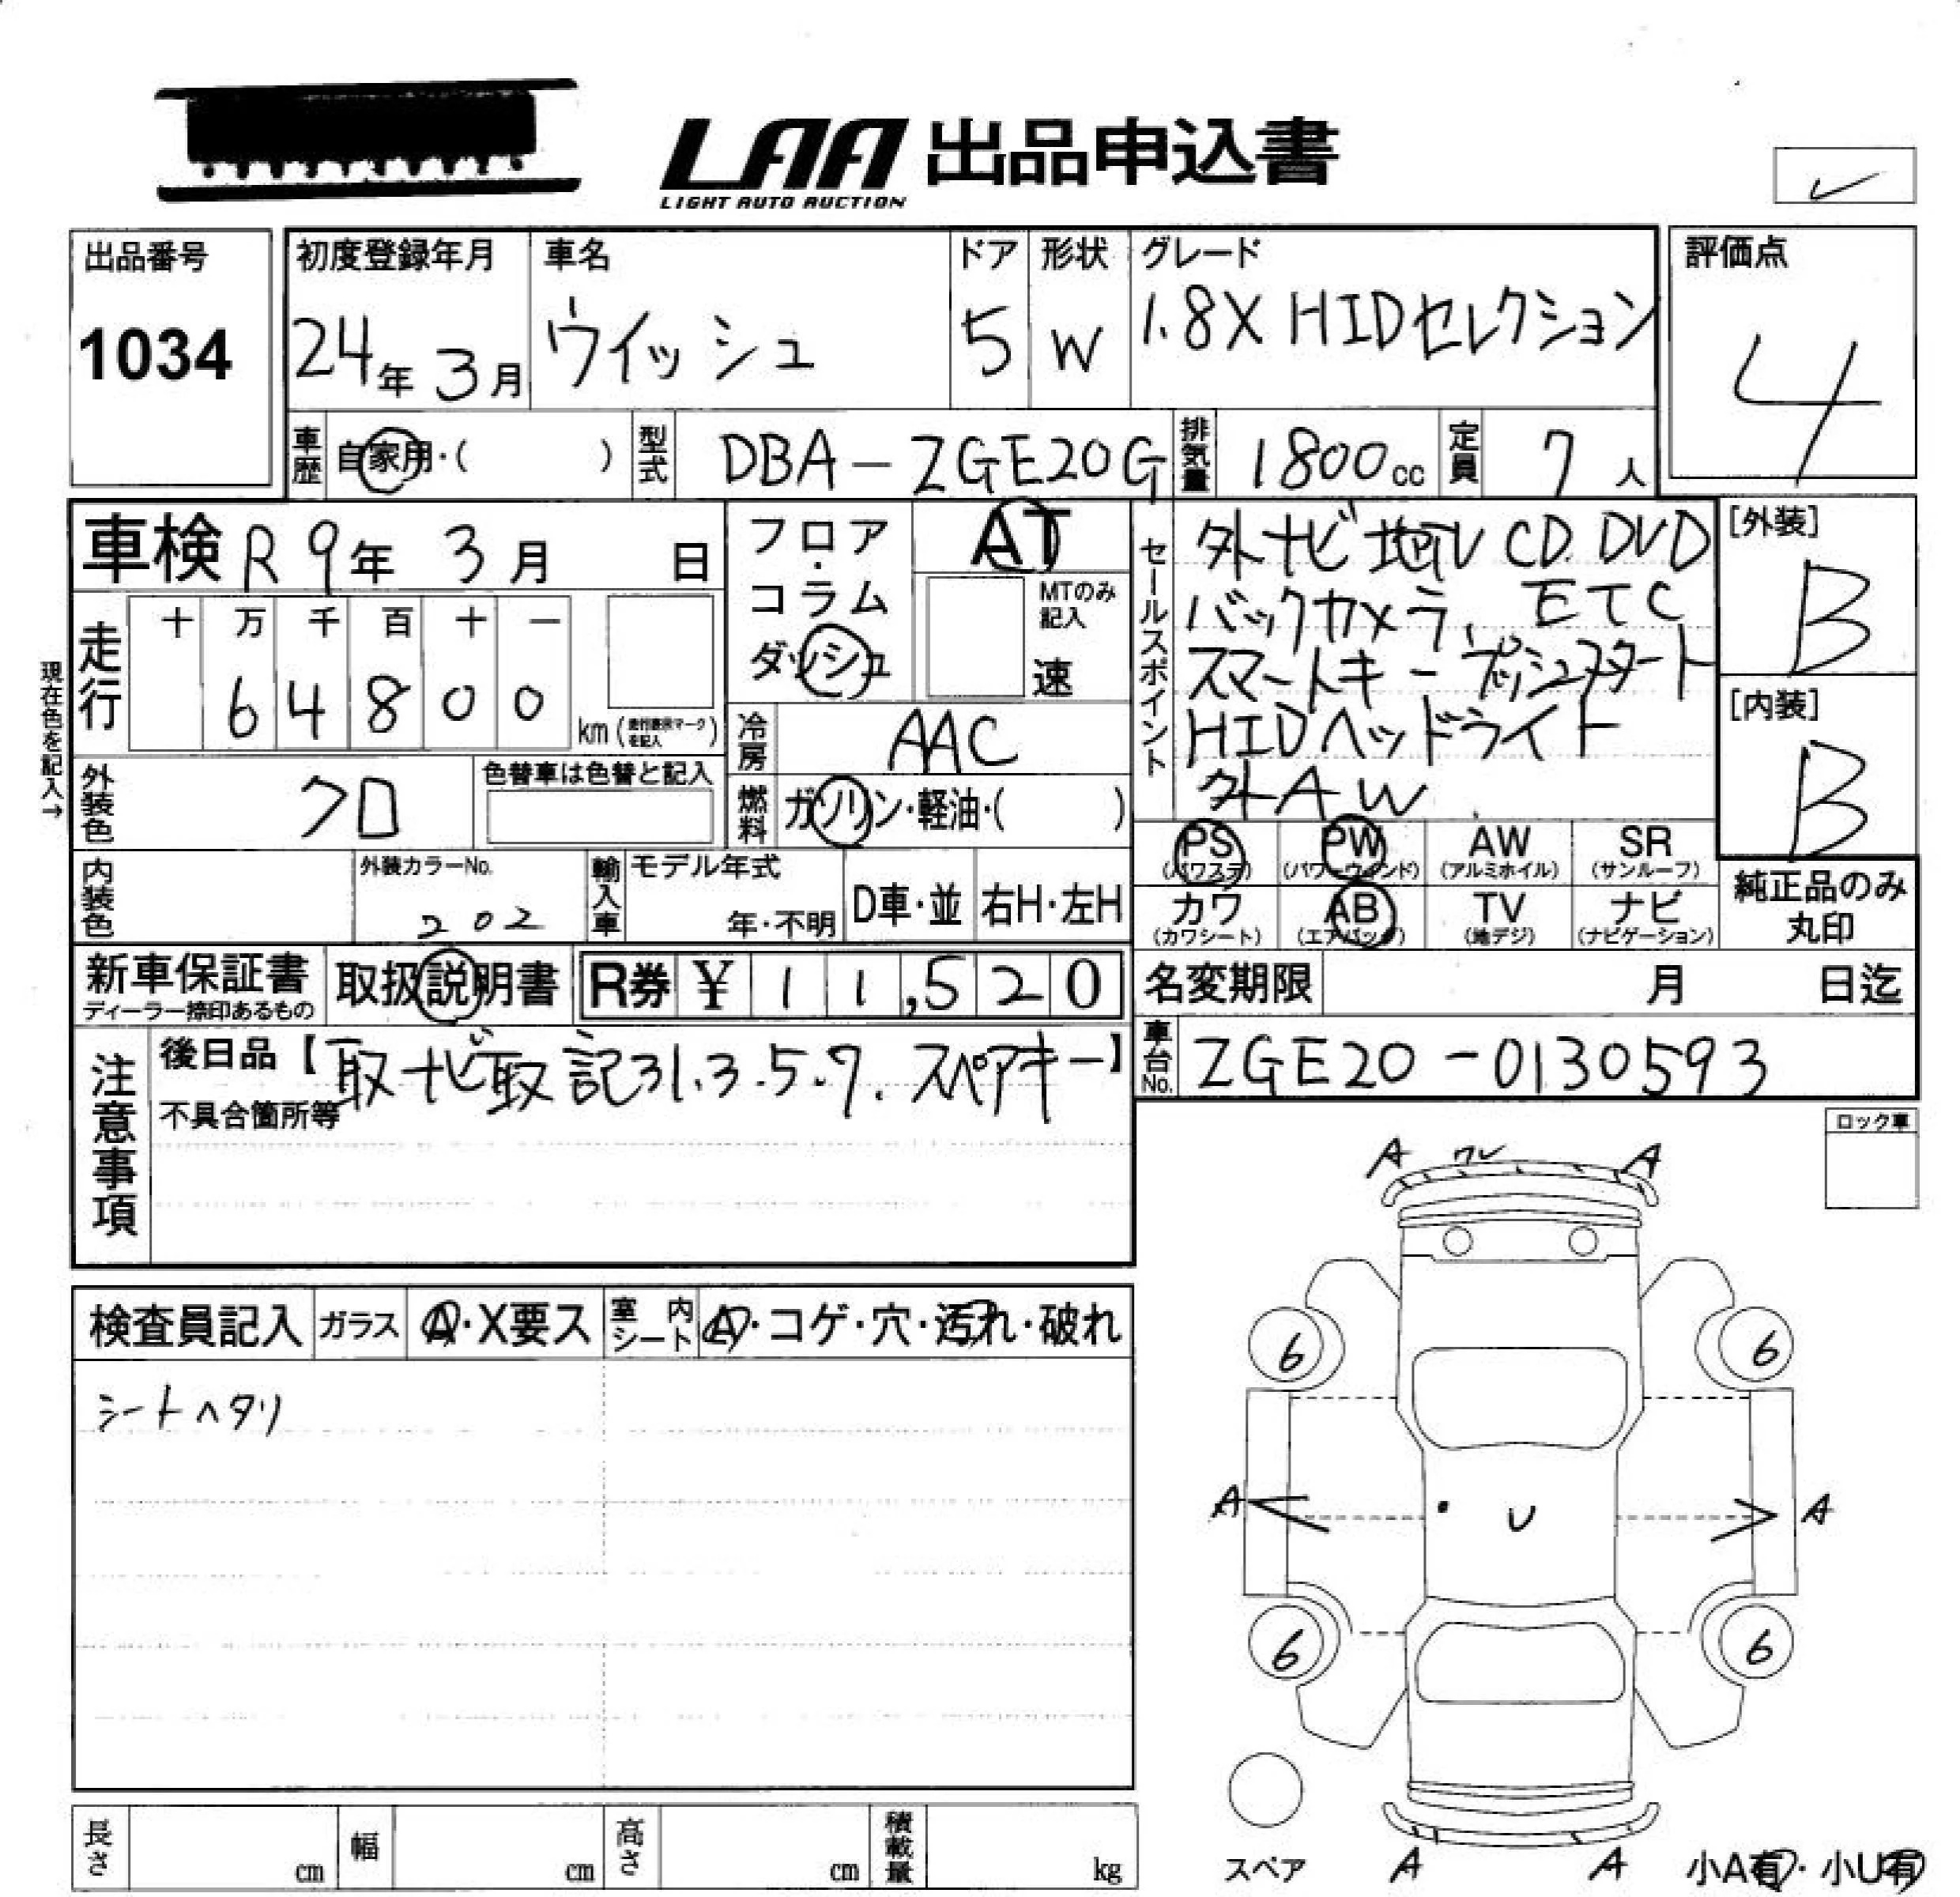 LAA 出品申込書
LIGHT AUTO AUCTION
出品番号
1034
初度登録年月
24年 3月
車名
ウイッシュ
ドア
5
形状
W
グレード
1.8X HIDセレクション
評価点
4
車歴 自家用・( )
型式 DBA-ZGE20G
排気量 1800cc
定員 7人
車検 R9年 3月 日
フロア・コラム
ダッシュ
AT
MTのみ記入
速
セールスポイント
外ナビ 地TV CD.DVD
バックカメラ、ETC
スマートキー プッシュスタート
HIDヘッドライト
外AW
[外装]
B
[内装]
B
現在色を記入→
走行
十 万 千 百 十 一
6 4 8 0 0
km(走行表示マークを記入)
冷房 AAC
外装色 クロ
色替車は色替と記入
燃料 ガソリン・軽油・( )
PS (パワステ)
PW (パワーウインド)
AW (アルミホイル)
SR (サンルーフ)
カワ (カワシート)
AB (エアバッグ)
TV (地デジ)
ナビ (ナビゲーション)
純正品のみ
丸印
内装色
外装カラーNo.
202
輸入車
モデル年式
年・不明
D車・並
右H・左H
新車保証書
ディーラー捺印あるもの
取扱説明書
R券 ¥ 11,520
名変期限 月 日迄
車台No. ZGE20-0130593
注意事項
後日品【取ナビ取記31.3.5.7.スペアキー】
不具合箇所等
ロック車
A ワレ A
検査員記入
ガラス A・X要ス
室内シート A・コゲ・穴・汚れ・破れ
シートヘタリ
6 6
A U A
6 6
スペア
A A
小A有・小U有
長さ cm
幅 cm
高さ cm
積載量 kg